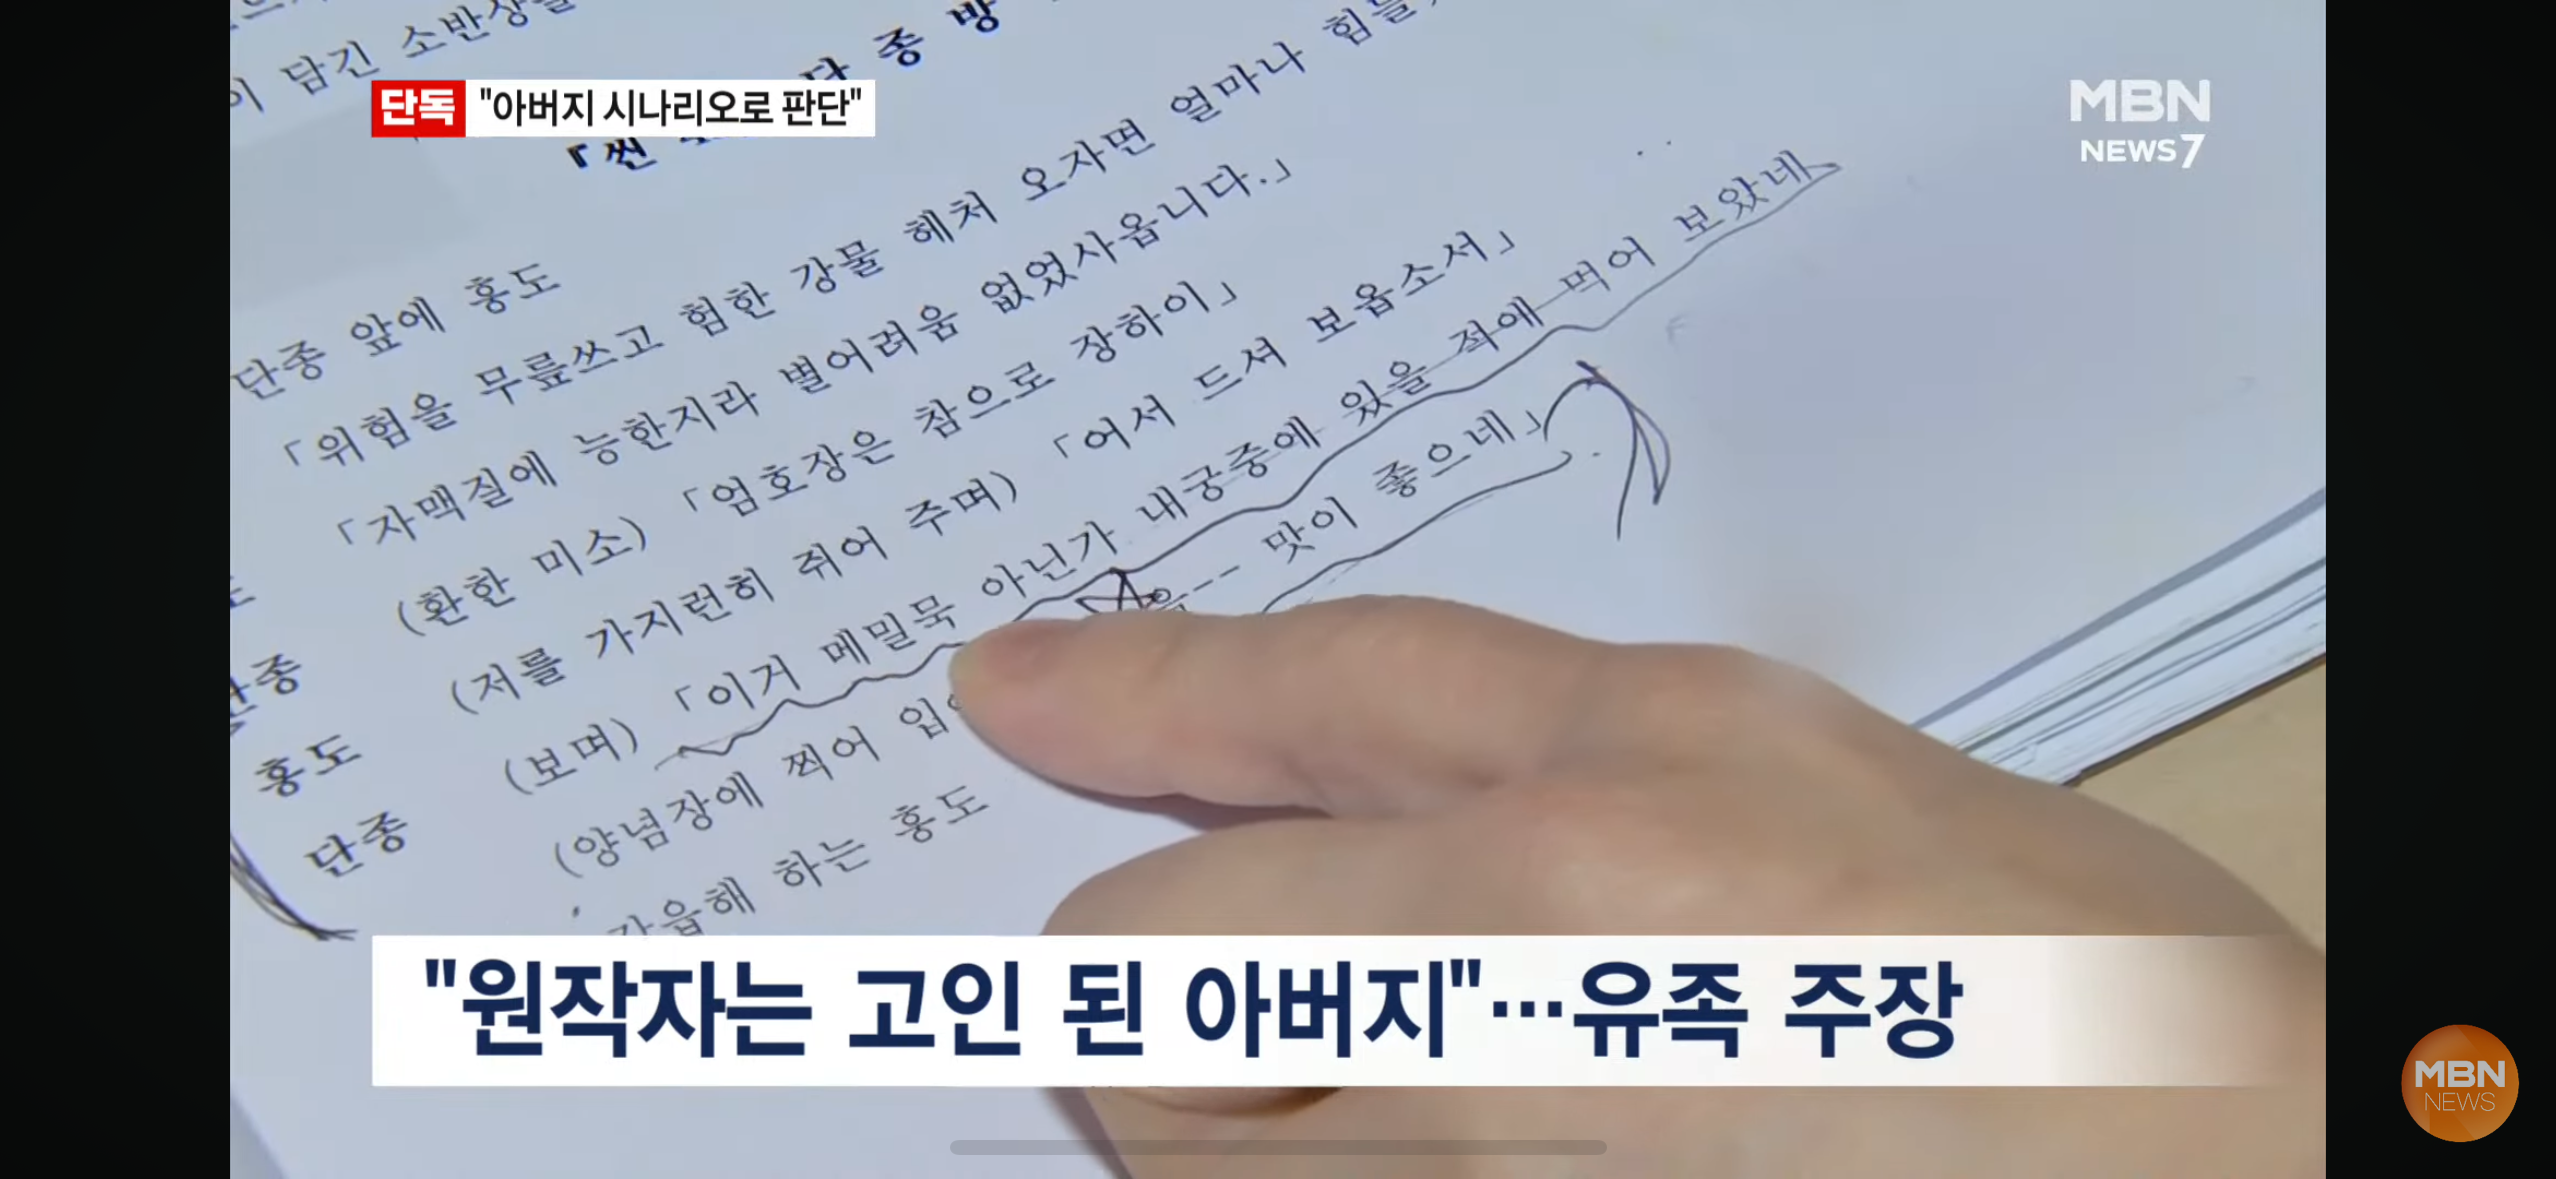 이 담긴 소반상을
단 종 방
단독 "아버지 시나리오로 판단"
MBN
NEWS 7
『씬
단종 앞에 홍도
「위험을 무릎쓰고 험한 강물 헤처 오자면 얼마나
「자맥질에 능한지라 별어려움 없었사옵니다.」
(환한 미소) 「엄호장은 참으로 장하이」
단종 (저를 가지런히 쥐어 주며) 「어서 드셔 보옵소서」
홍도 (보며) 「이거 메밀묵 아닌가 내궁중에 있을 적에 먹어 보았네
단종 (양념장에 찍어 -- 맛이 좋으네」
하는 홍도
"원작자는 고인 된 아버지"…유족 주장
MBN
NEWS